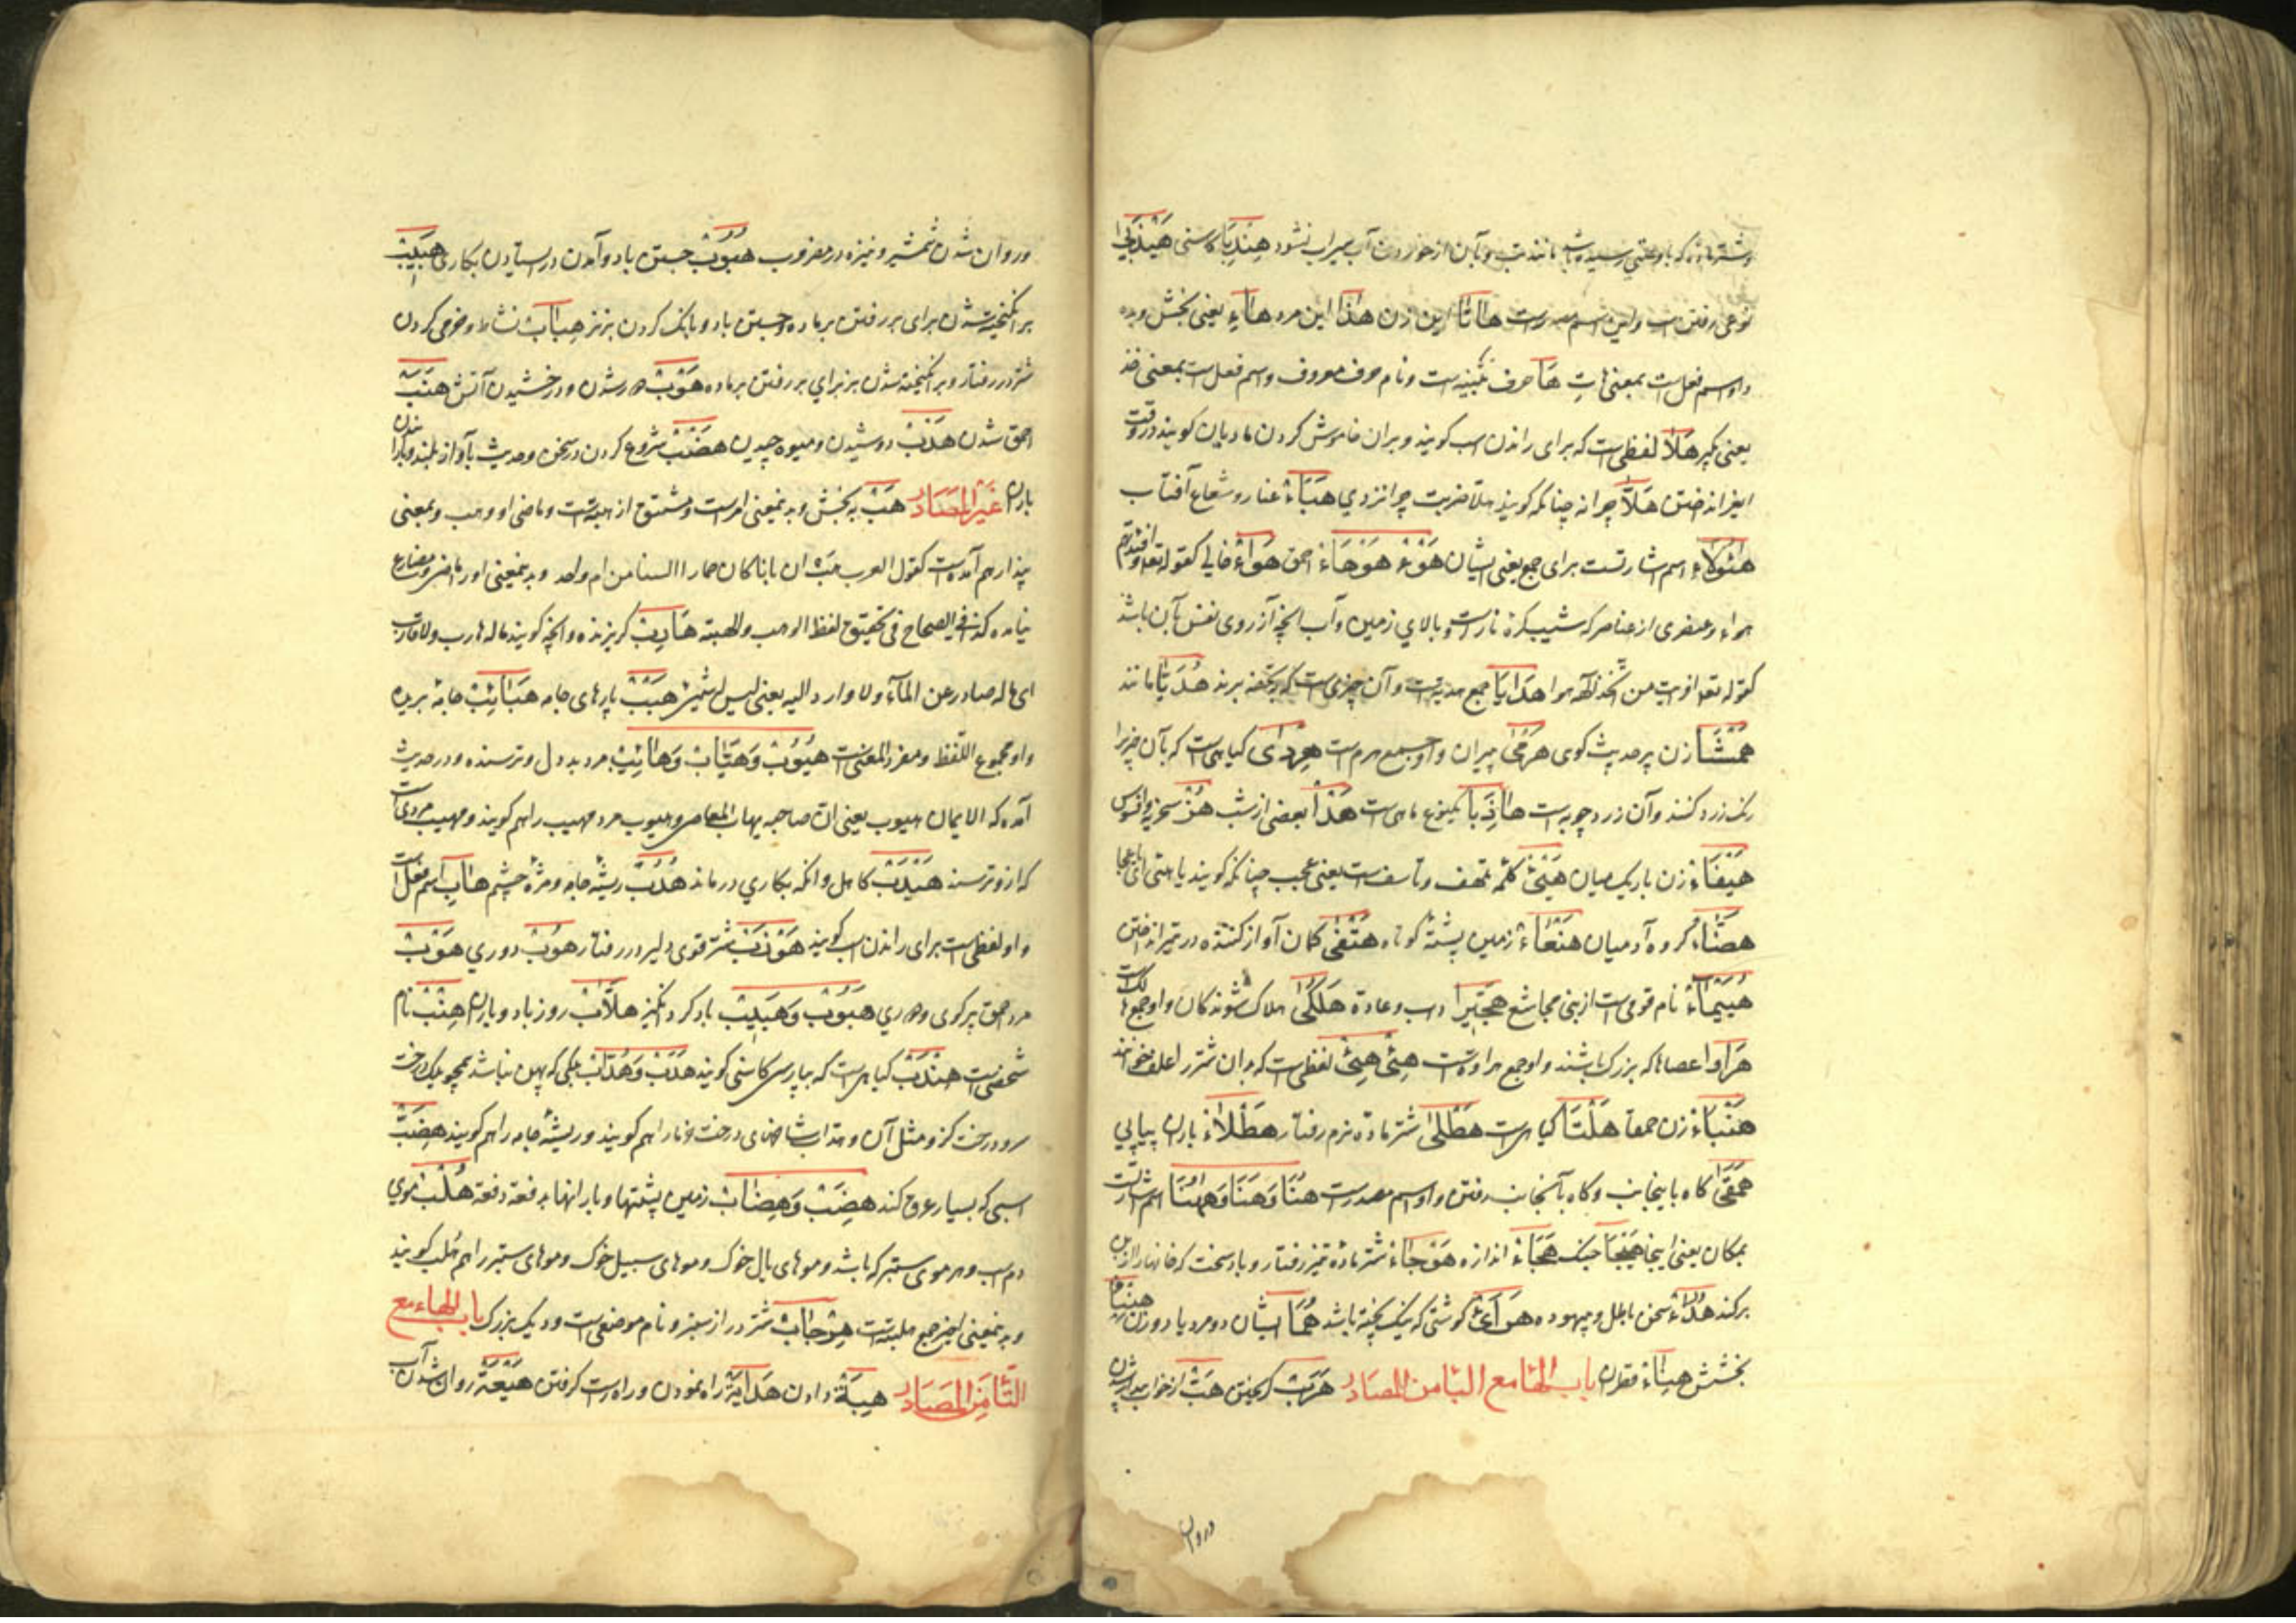 وشتر ماده که باو رسیده باشد مانند تب و آن از خوردن آب سیراب نشود هِندَبا کاسنی هَیْذَبی
نوعی رفتن اسب و این اسم مصدرست هاتا این زن هذا این مرد هاءِ یعنی بخش و بده
و او اسم فعل است بمعنی هاتِ هَا حرف تنبیه است و نام حرف معروف و اسم فعل است بمعنی خذ
یعنی بگیر هَلاً لفظی است که برای راندن اسب گویند و بران خاموش کردن مادیان گویند در وقت
انداختن هَلّاً چرا نه چنانکه گویند هلّا ضربت چرا نزدی هَبَاءً غبار و شعاع آفتاب
هٰؤُلاءِ اسم اشارتست برای جمع یعنی ایشان هَوْءَ هَوْهَاءَ احمق هَوَاءٌ خالی کقوله تعالی و افئدتهم
هواء و عنصری از عناصر که شیب کرهٔ نارست و بالای زمین و آب آنچه آرزوی نفس بآن باشد
کقوله تعالی افرایت من اتّخذ الٰهه هوا هَدَایَا جمع هدیه است و آن چیزی است که بتحفه برند هُدَیَّا مانند
هَمْشَا زن پر حدیث گوی هَرْمَی پیران و او جمع هرم است هِرْدَی گیاهی است که بآن چیز را
رنگ زرد کنند و آن زرد چوبه است هازِبا یکنوع ماهی است هَذَأ بعضی از شب هُزْءٌ سخریه و افسوس
هَیْفَاءُ زن باریک میان هَیْئَ کلمهٔ تلهف و تأسف است یعنی عجب چنانکه گویند یا هیئ ای یا عجبا
هصَّاءُ گروه آدمیان هَنْعَاءُ زمین پشتهٔ کوتاه هَتْفَی کمان آواز کننده در تیر انداختن
هُیَیْمَاءُ نام قومی است از بنی مجاشع هِجِّیرَا داب و عادة هَلْکَی هلاک شوندگان و او جمع هالک است
هَرَاوا عصاها که بزرگ باشند و او جمع هراوة است هِئْ هِئْ لفظی است که بدان شتر را علف خوانند
هَنْبَاءُ زن حمقا هَلْتَا گیاهی است هَطْلَی شتر مادهٔ نرم رفتار هَطْلَاءُ باران پیاپی
هَمَقَی گاه باینجانب و گاه بآنجانب رفتن و او اسم مصدرست هُنَا وَهَنَا وَهٰهُنَا اسم اشارتست
بمکان یعنی اینجا هَیْجَا جنگ هِجَاءُ اندازه هَوْجَاءُ شتر مادهٔ تیز رفتار و باد سخت که خانها را از بن
برکند هُذَاءُ سخن باطل و بیهوده گوشتی که نیک پخته باشد هُمَا ایشان دو مرد یا دو زن
بخشش هِنَاءُ قطران باب الهاء مع الباء من المصادر هَرَبْ گریختن هَبْ از خواب بیدار شدن
وروان
وروان شدن شمشیر و نیزه در مضروب هُبُوبْ جستن باد و آمدن در ایستادن بکاری هَبِیبْ
برانگیخته شدن برای بر رفتن بر ماده و جستن باد و بانگ کردن بز نر هِبَابْ نشاط و خرمی کردن
شتر در رفتار و برانگیخته شدن بز برای بر رفتن بر ماده هَوْبْ دور شدن و درخشیدن آتش هَنَبْ
احمق شدن هَدْبْ دوشیدن و میوه چیدن هَضْبْ شروع کردن در سخن و حدیث بآواز بلند و باران
باران غَیْرِ المصَادِر هَبْ به بخش و بده بمعنی امرست و مشتق از هبة است و ماضی او وهب و بمعنی
پندار هم آمده است کقول العرب هَبْ ان بابا کان حمارا السنا من ام واحد و بدینمعنی او را ماضی و مضارع
نیامده کذا فی الصحاح فی تحقیق لفظ الوهب و الهبة هَارِبْ گریزنده و آنچه گویند ما له هارب ولا قارب
ای ما له صادر عن المآء ولا وارد الیه یعنی لیس له شیئ هِبَبْ پارهای جامه هَبَائِبْ جامهٔ بریده
و او مجموع اللفظ و مفرد المعنی است هَیُوبْ وَهَیَّابْ وَهَائِبْ مرد بد دل و ترسنده و در حدیث
آمده که الایمان هیوب یعنی ان صاحبه یهاب المعاصی و هیوب مرد مهیب را هم گویند و مهیب مردی است
که ازو ترسند هَیْدَبْ کاهل و آنکه بکاری درماند هُدُبْ ریشهٔ جامه و مژهٔ چشم هَابِ اسم فعل است
و او لفظی است برای راندن اسب گویند هَوْزَبْ شتر قوی دلیر در رفتار هُوبْ دوری هَوْبْ
مرد احمق پر گوی و دوری هَبُوبْ وَهَبِیبْ باد گرد انگیز هَلَّابْ روز باد و باران هِنْبْ نام
شخصی است هِندَبْ گیاهی است که بپارسی کاسنی گویند هَدَبْ وَهُدَّابْ برگی که پهن نباشد همچو برگ درخت
سرو و درخت گز و مثل آن و هداب شاخهای درخت و نار را هم گویند و ریشهٔ جامه را هم گویند هِضَبّْ
اسبی که بسیار عرق کند هِضَبْ وَهِضَابْ زمین پشتها و بارانها بدفعة دفعة هُلْبْ موی
دم اسب و هر موی ستبر که باشد و موهای بال خوک و موهای سبیل خوک و موهای ستبر را هم هُلب گویند
و بدینمعنی اخیر جمع هلبة است هِرْجَابْ شتر دراز ستبر و نام موضعی است و دیگ بزرگ باب الهاء مع
التّاء مِن المصَادِر هِبَةْ دادن هِدَایَةْ راه نمودن و راه راست گرفتن هَیْعَةْ روان شدن آب